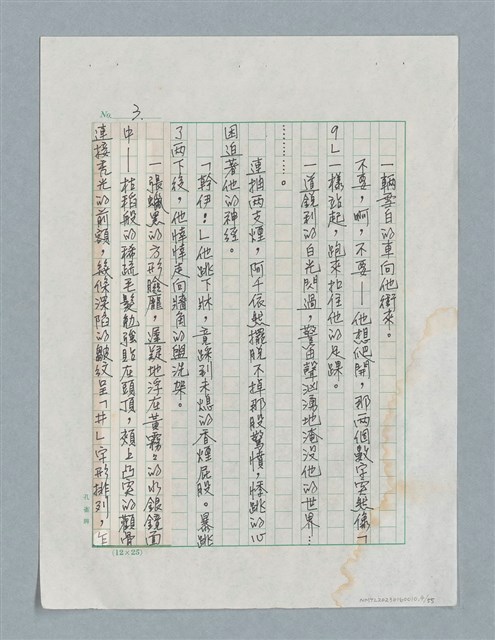 No. 3.
一輛雪白的車向他衝來。
不要,啊,不要——他想爬開,那兩個數字突然像「
9」一樣站起,跑來拉住他的足踝。
一道銳利的白光閃過,警笛聲洶湧地淹沒他的世界…
…………。
連抽兩支煙,阿千依然擺脫不掉那股驚憤,悸跳的心
困迫著他的神經。
「幹伊!」他跳下牀,竟踩到未熄的香煙屁股。暴跳
了兩下後,他悻悻走向牆角的盥洗架。
一張蠟黑的方形臉龐,遲疑地浮在黃霧々的水銀鏡面
中——枯稻般的稀疏毛髮勉強貼在頭頂,頰上凸突的顴骨
連接禿光的前額,幾條深陷的皺紋呈「井」字形排列,乍
(12×25)